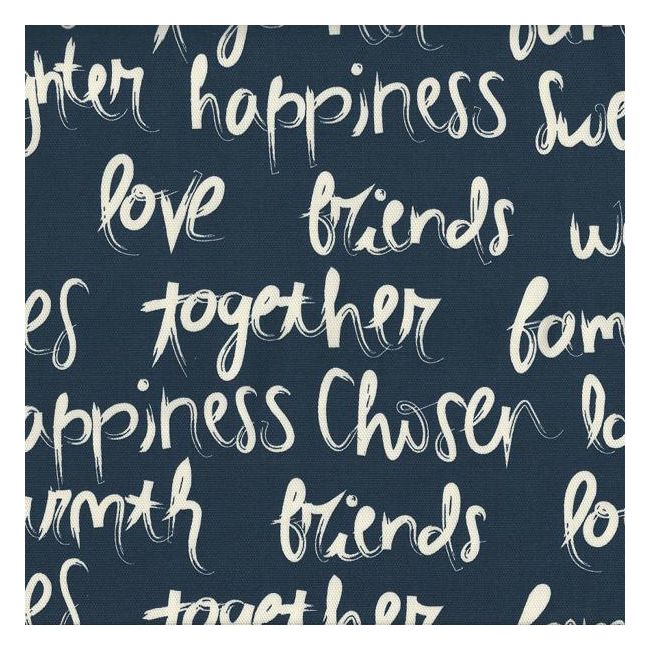 ghter happiness swe
love friends w
es together fam
appiness Chosen lo
armth friends lo
es together fam